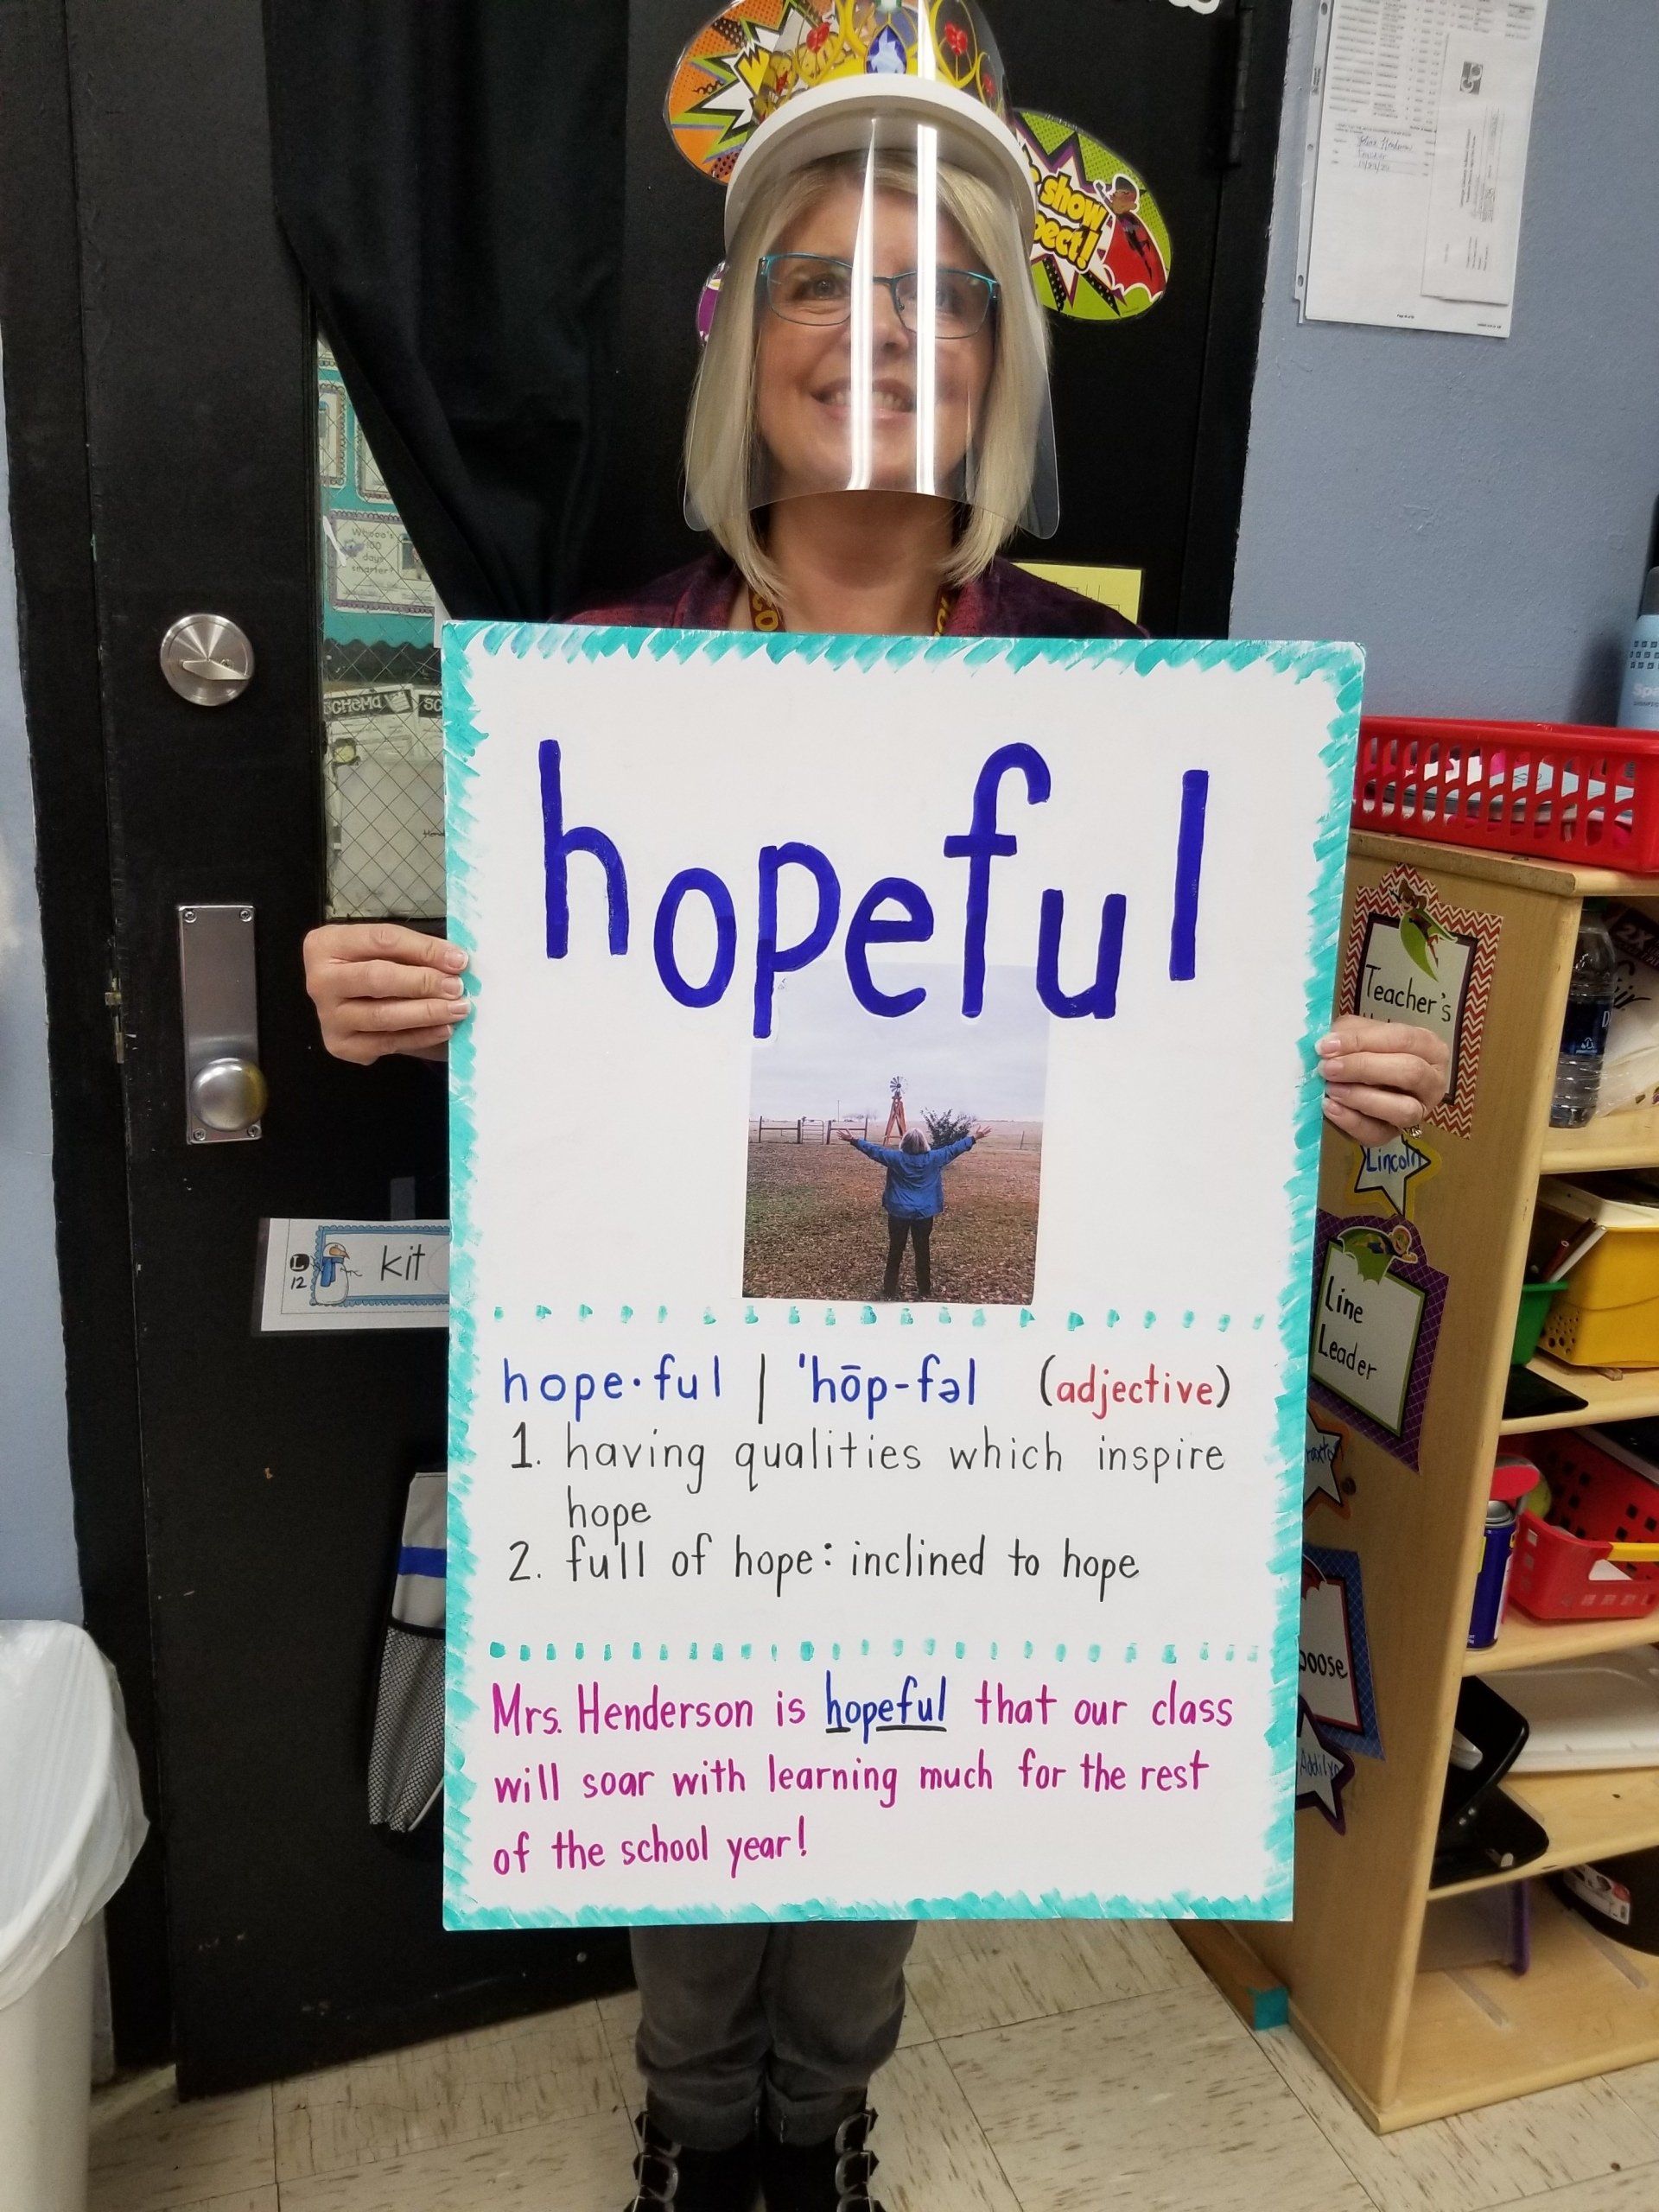 show
pect!
Teacher
Whooo's
100
days
smarter?
SCHEMA
SC
hopeful
Teacher's
Lincoln
L
12
kit
Line
Leader
hope·ful | 'hōp-fəl (adjective)
1. having qualities which inspire
hope
2. full of hope: inclined to hope
Mrs. Henderson is hopeful that our class
will soar with learning much for the rest
of the school year!
oose
2X